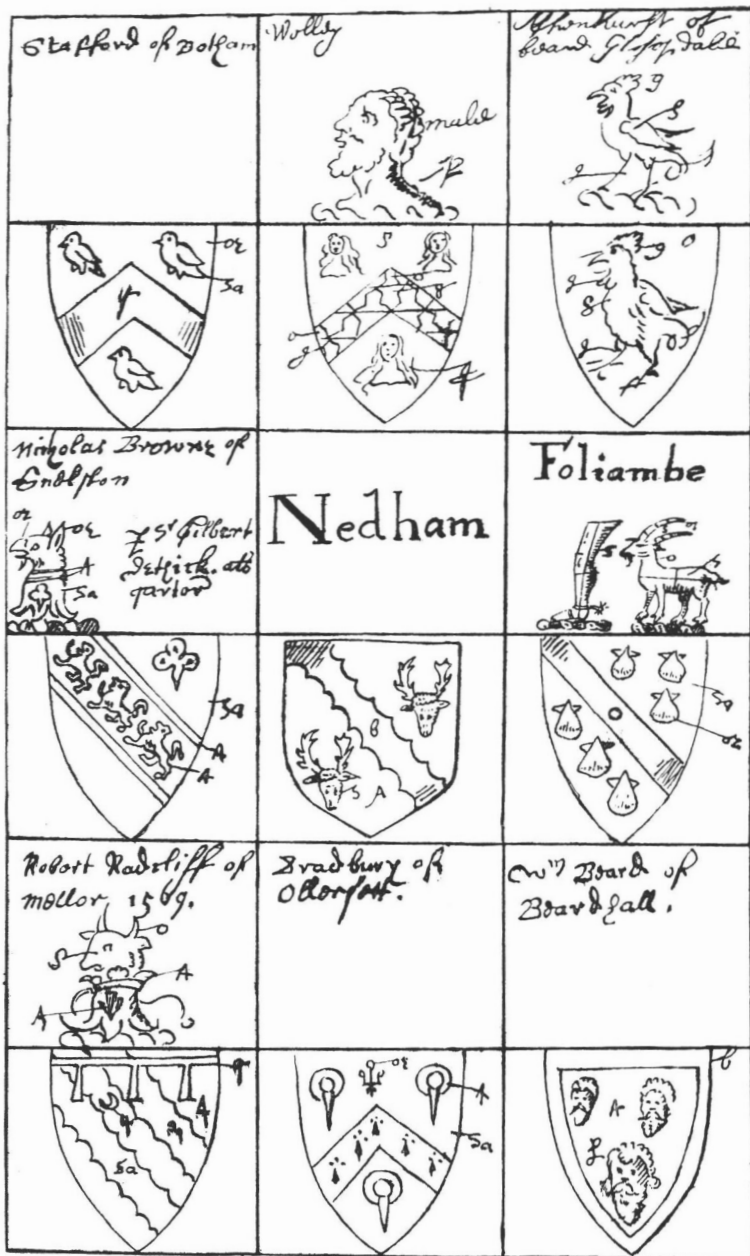 Stafford of Botham
Wolley
Ashenhurst of
beard Glosopdale
g
g
male
P
g
or
sa
S
o
g
o
g
g
o
g
g
Nicholas Browne of
Snelston
or
or
A
Sa
p Sr Gilbert
Dethick. als
garter
Nedham
Foliambe
s
o
Sa
A
A
B
S A
sa
or
Robert Radcliff of
mellor 1569.
o
S
A
A
Bradbury of
Ollersett.
Wm Beard of
Beardhall.
sa
or
A
sa
A